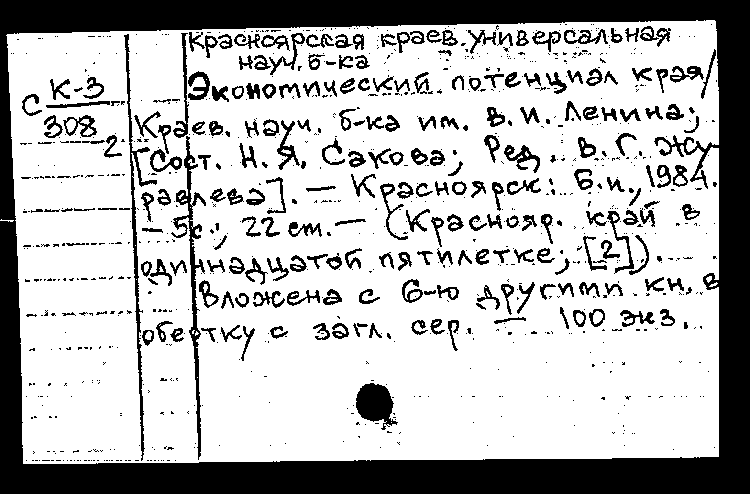 Красноярская краев. универсальная
науч. б-ка
с К-3
308
2
Экономический потенциал края/
Краев. науч. б-ка им. В. И. Ленина;
[Сост. Н. Я. Сакова; Ред. В. Г. Жу-
равлева]. — Красноярск: Б.и., 1984.
— 5с.; 22 см. — (Краснояр. край в
одиннадцатой пятилетке; [2]).
Вложена с 6-ю другими кн. в
обертку с загл. сер. — 100 экз.